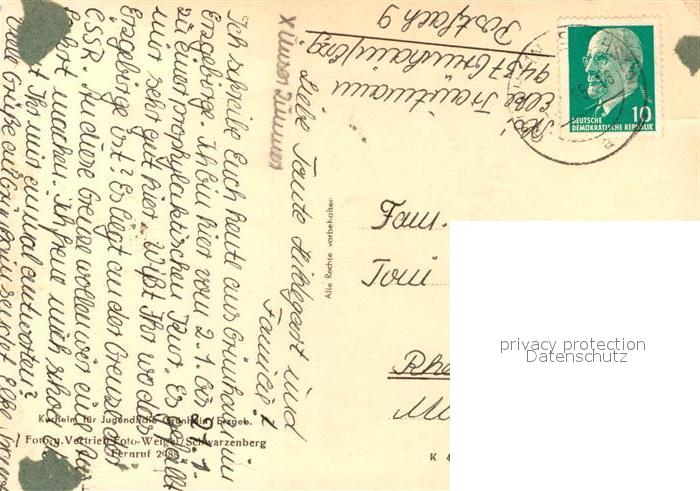 Liebe Tante Hildegart und
Familie!
Ich schreibe Euch heute aus Grünhain im
Erzgebirge. Ich bin hier vom 2.1. bis 27.1.
zu einer prophylaktischen Kur. Es gefällt
mir sehr gut hier. Wißt Ihr wo das
Erzgebirge ist? Es liegt an der Grenze der
CSSR. An diese Grenze wollen wir eine
fahrt machen. Ich freue mich schon
Ihr mir einmal antworten?
Viele Grüße aus Grünhain sendet Elke
x unser Zimmer
Elke Trautmann
9437 Grünhain/Erzg.
Postfach 9
DEUTSCHE
DEMOKRATISCHE REPUBLIK
10
Alle Rechte vorbehalten
Fam.
Toni
Rhe
Kurheim für Jugendliche Grünhain/Erzgeb.
Fotogr. Vertrieb Foto-Weigel/Schwarzenberg
Fernruf
K 4
privacy protection
Datenschutz